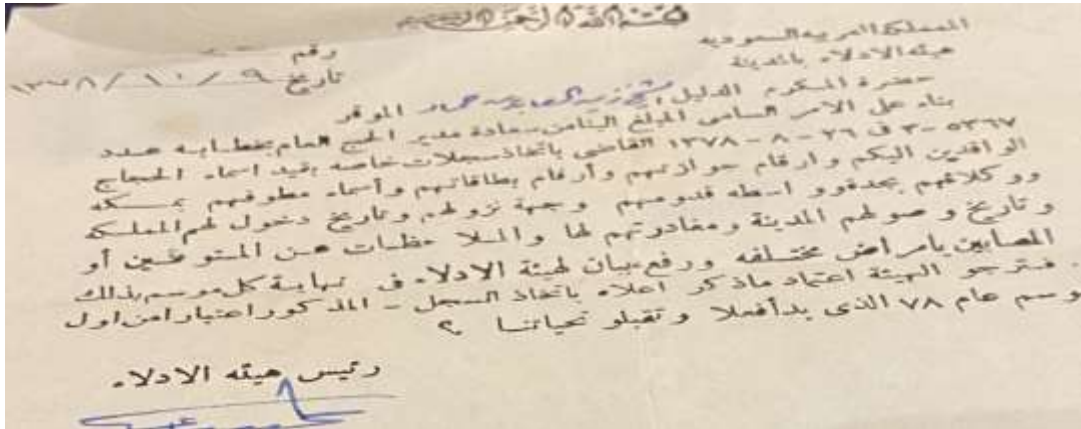 بسم الله الرحمن الرحيم
المملكة العربيه السعوديه
هيئه الادلاء بالمدينة
رقم
تاريخ ٩/ ١٠ / ١٣٧٨
حضرة المكرم الدليل الشيخ زين العابدين حماد الموقر
بناء على الامر السامى المبلغ الينامن سعادة مدير الحج العام بخطابه عدد
٥٣٦٧-٣ ف ٢٦ - ٨ - ١٣٧٨ القاضى باتخاذ سجلات خاصه بقيد اسماء الحجاج
الوافدين اليكم وارقام جوازتهم وأرقام بطاقاتهم وأسماء مطوفهم بمسكه
ووكلائهم بجدةوو اسطه قدومهم وجهة نزولهم وتاريخ دخول لهم المملسكه
وتاريخ وصولهم المدينة ومغادرتهم لها والملا حظات عن المتو فين أو
المصابين بامراض مختلفه ورفع بيان لهيئة الادلاء فى نهاية كل موسم بذلك
فترجو الهيئة اعتماد ماذكر اعلاه باتخاذ السجل - المذكور اعتبارا من اول
وسم عام ٧٨ الذى بدأفعلا وتقبلو تحياتنا ؟
رئيس هيئه الادلاء